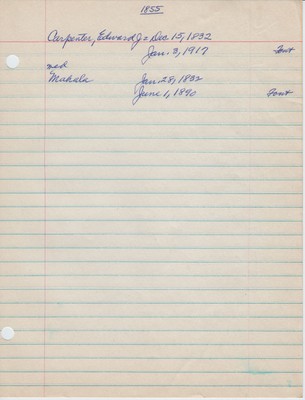 1855
Carpenter, Edward J = Dec 15, 1832
Jan. 3, 1917 Font
and
Mahala Jan. 28, 1832
June 1, 1890 Font